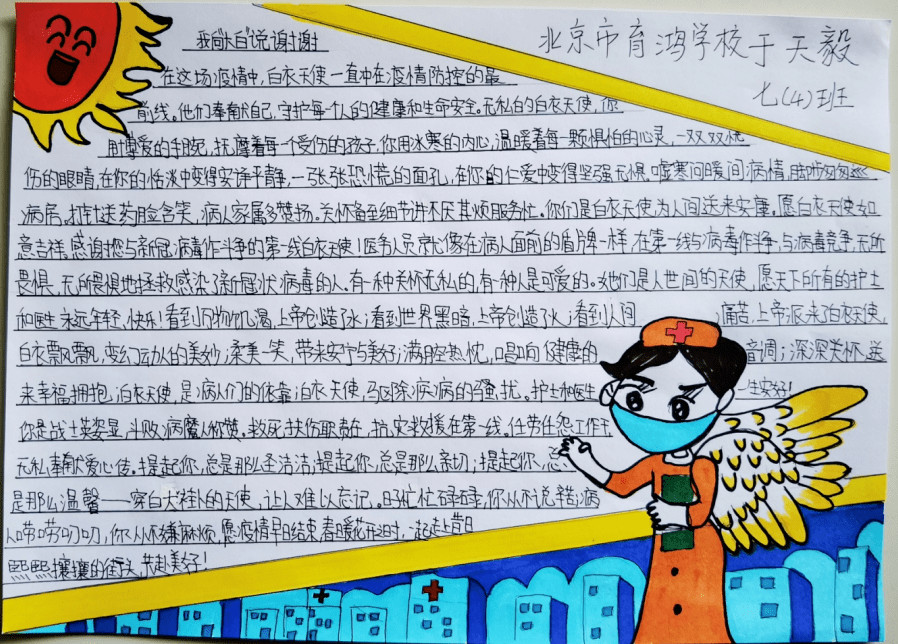 我向"大白"说谢谢
北京市育鸿学校于天毅
七(4)班
在这场疫情中,白衣天使一直冲在疫情防控的最
前线。他们奉献自己,守护每个人的健康和生命安全。无私的白衣天使,你
用博爱的手腕,抚摩着每个受伤的孩子。你用冰寒的内心,温暖着每一颗惧怕的心灵,一双双忧
伤的眼睛,在你的恬淡中变得安详平静,一张张恐慌的面孔,在你的仁爱中变得坚强无惧。嘘寒问暖间病情,脚步匆匆巡
病房,打针送药脸含笑,病人家属多赞扬。关怀备至细节讲,不厌其烦服务忙。你们是白衣天使,为人间送来安康。愿白衣天使如
意吉祥,感谢您与新冠病毒作斗争的第一线白衣天使!医务人员就像在病人面前的盾牌一样,在第一线与病毒作斗争,与病毒竞争,无所
畏惧,无所畏惧地拯救感染了新冠状病毒的人。有一种关怀无私的,有一种人是可爱的。她们是人世间的天使,愿天下所有的护士
和医生永远年轻、快乐!看到万物饥渴,上帝创造了水;看到世界黑暗,上帝创造了火;看到人间 痛苦,上帝派来白衣天使,
白衣飘飘,变幻动人的美妙;柔美一笑,带来安宁与美好;满腔热忱,唱响健康的 音调;深深关怀,送
来幸福拥抱;白衣天使,是病人们的依靠;白衣天使,马区除疾病的骚扰。护士和医生 一生安好!
你是战士英姿显,斗败病魔人称赞。救死扶伤职责在,抗灾救援在第一线。任劳任怨工作干
无私奉献爱心传。提起你,总是那么圣洁;提起你,总是那么亲切;提起你,总
是那么温馨——穿白大褂的天使,让人难以忘记。日子忙忙碌碌,你从不说苦;病
人唠唠叨叨,你从不嫌麻烦,愿疫情早日结束,春暖花开之时,一起走上昔日
熙熙攘攘的街头,共赴美好!